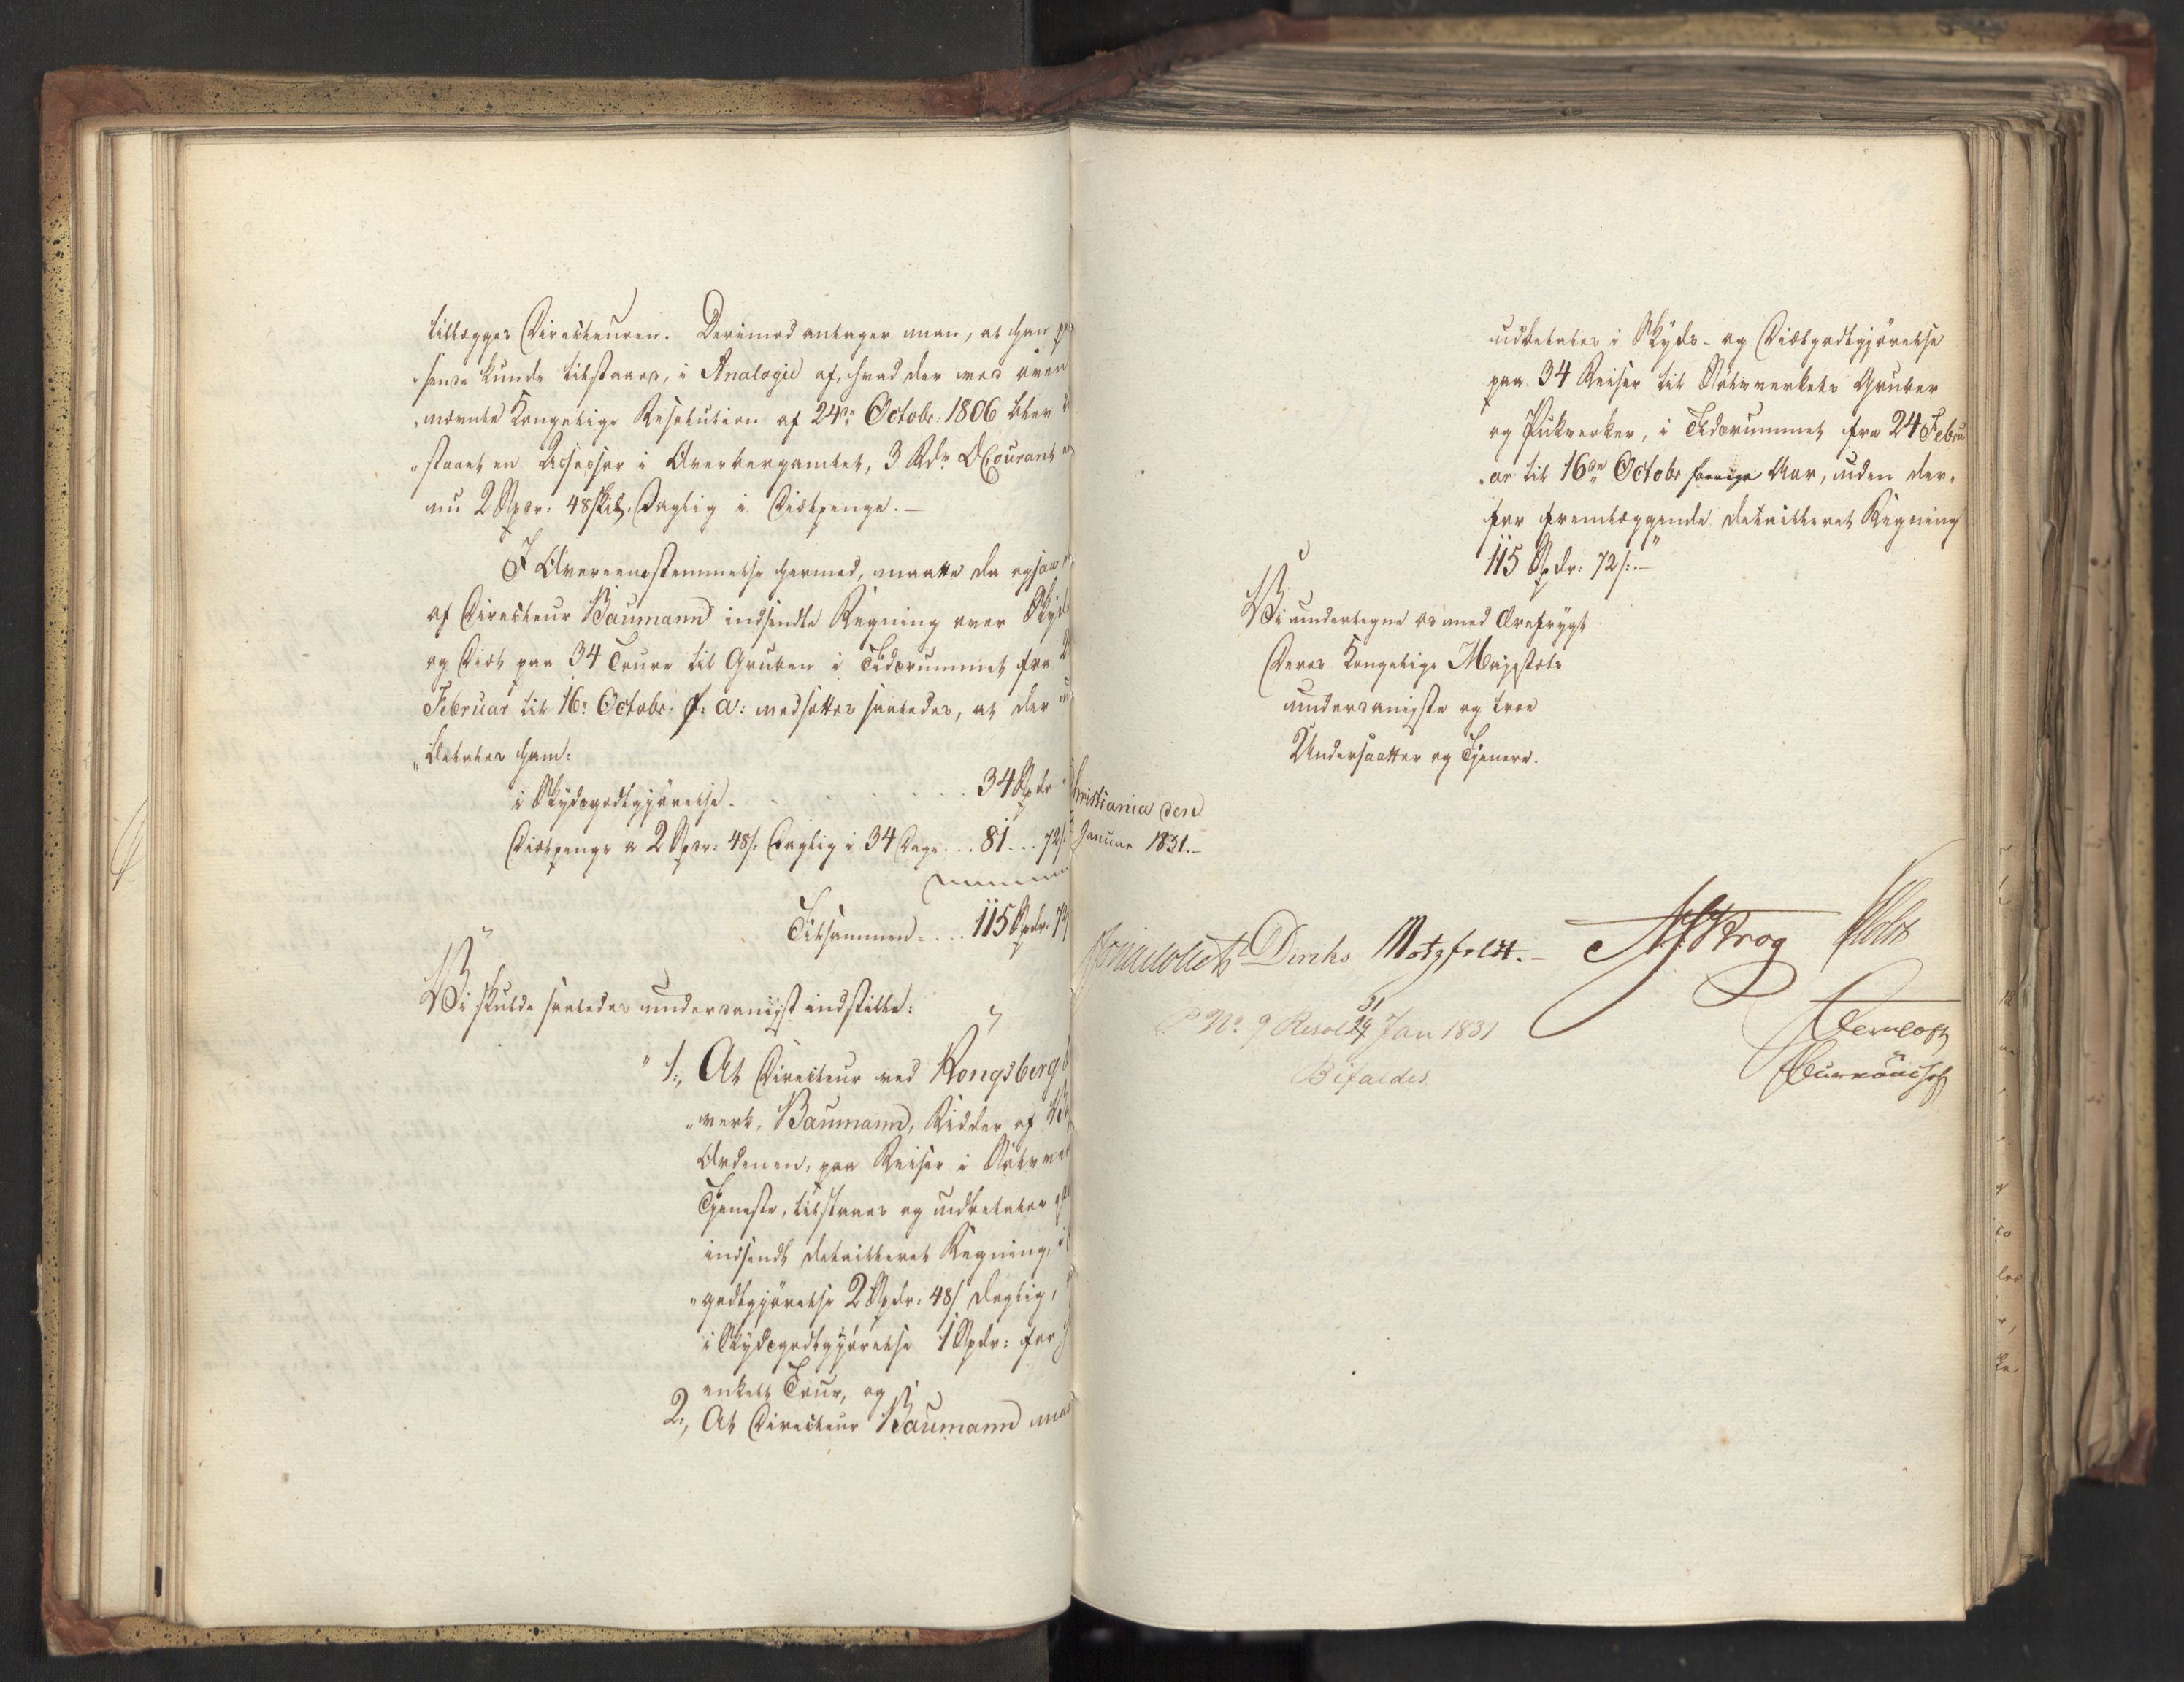 tillægges Directeuren. Derimod antager man, at ham
„sende kunde tilstaaes, i Analogie af, hvad der ved oven
„nævnte Kongelige Resolution af 24de Octobr: 1806 blev
„staaet en Assessor i Overbergamtet, 3 Rdr DCourant
nu 2 Spdr: 48 skill. Daglig i Diætpenge.—
I Overeensstemmelse hermed, maatte da ogsaa
af Directeur Baumann indsendte Regning over Skyds
og Diæt paa 34 Toure til Gruben i Tidsrummet fra
Februar til 16de Octobr: f: a: nedsættes saaledes, at der
„betales ham:
i Skydsgodtgjörelse. . . . . . . . 34 Spdr
Diætpenge a 2 Spdr: 48/: Daglig i 34 Dage . . . 81 . . . 72/:
Tilsammen . . . 115 Spdr. 72
Vi skulde saaledes underdanigst indstille:
„1:, At Directeur ved Kongsberg
„verk, Baumann, Ridder af
Ordenen, paa Reiser i Sølvver
Tjeneste, tilstaaes og udbetales
indsendt detailleret Regning, i
„godtgjörelse 2 Spdr: 48/ daglig,
i Skydsgodtgjörelse 1 Spdr: for
enkelt Tour, og
2:, At Directeur Baumann maa
udbetales i Skyds- og Diætgodtgjörelse
paa 34 Reiser til Sølvverkets Gruber
og Pukverker, i Tidsrummet fra 24 Febru
„ar til 16de Octobr forrige Aar, uden der„
for fremlæggende detailleret Regning
115 Spdr: 72/:—"
Vi undertegne os med Ærefrygt
Deres Kongelige Majestæts
underdanigste og troe
Undersaatter og Tjenere.
Christiania den
Januar 1831.—
Jonas Collett Diriks Motzfeldt.— Krog Holst
No. 9 Resol 24 31 Jan 1831
Bifaldes